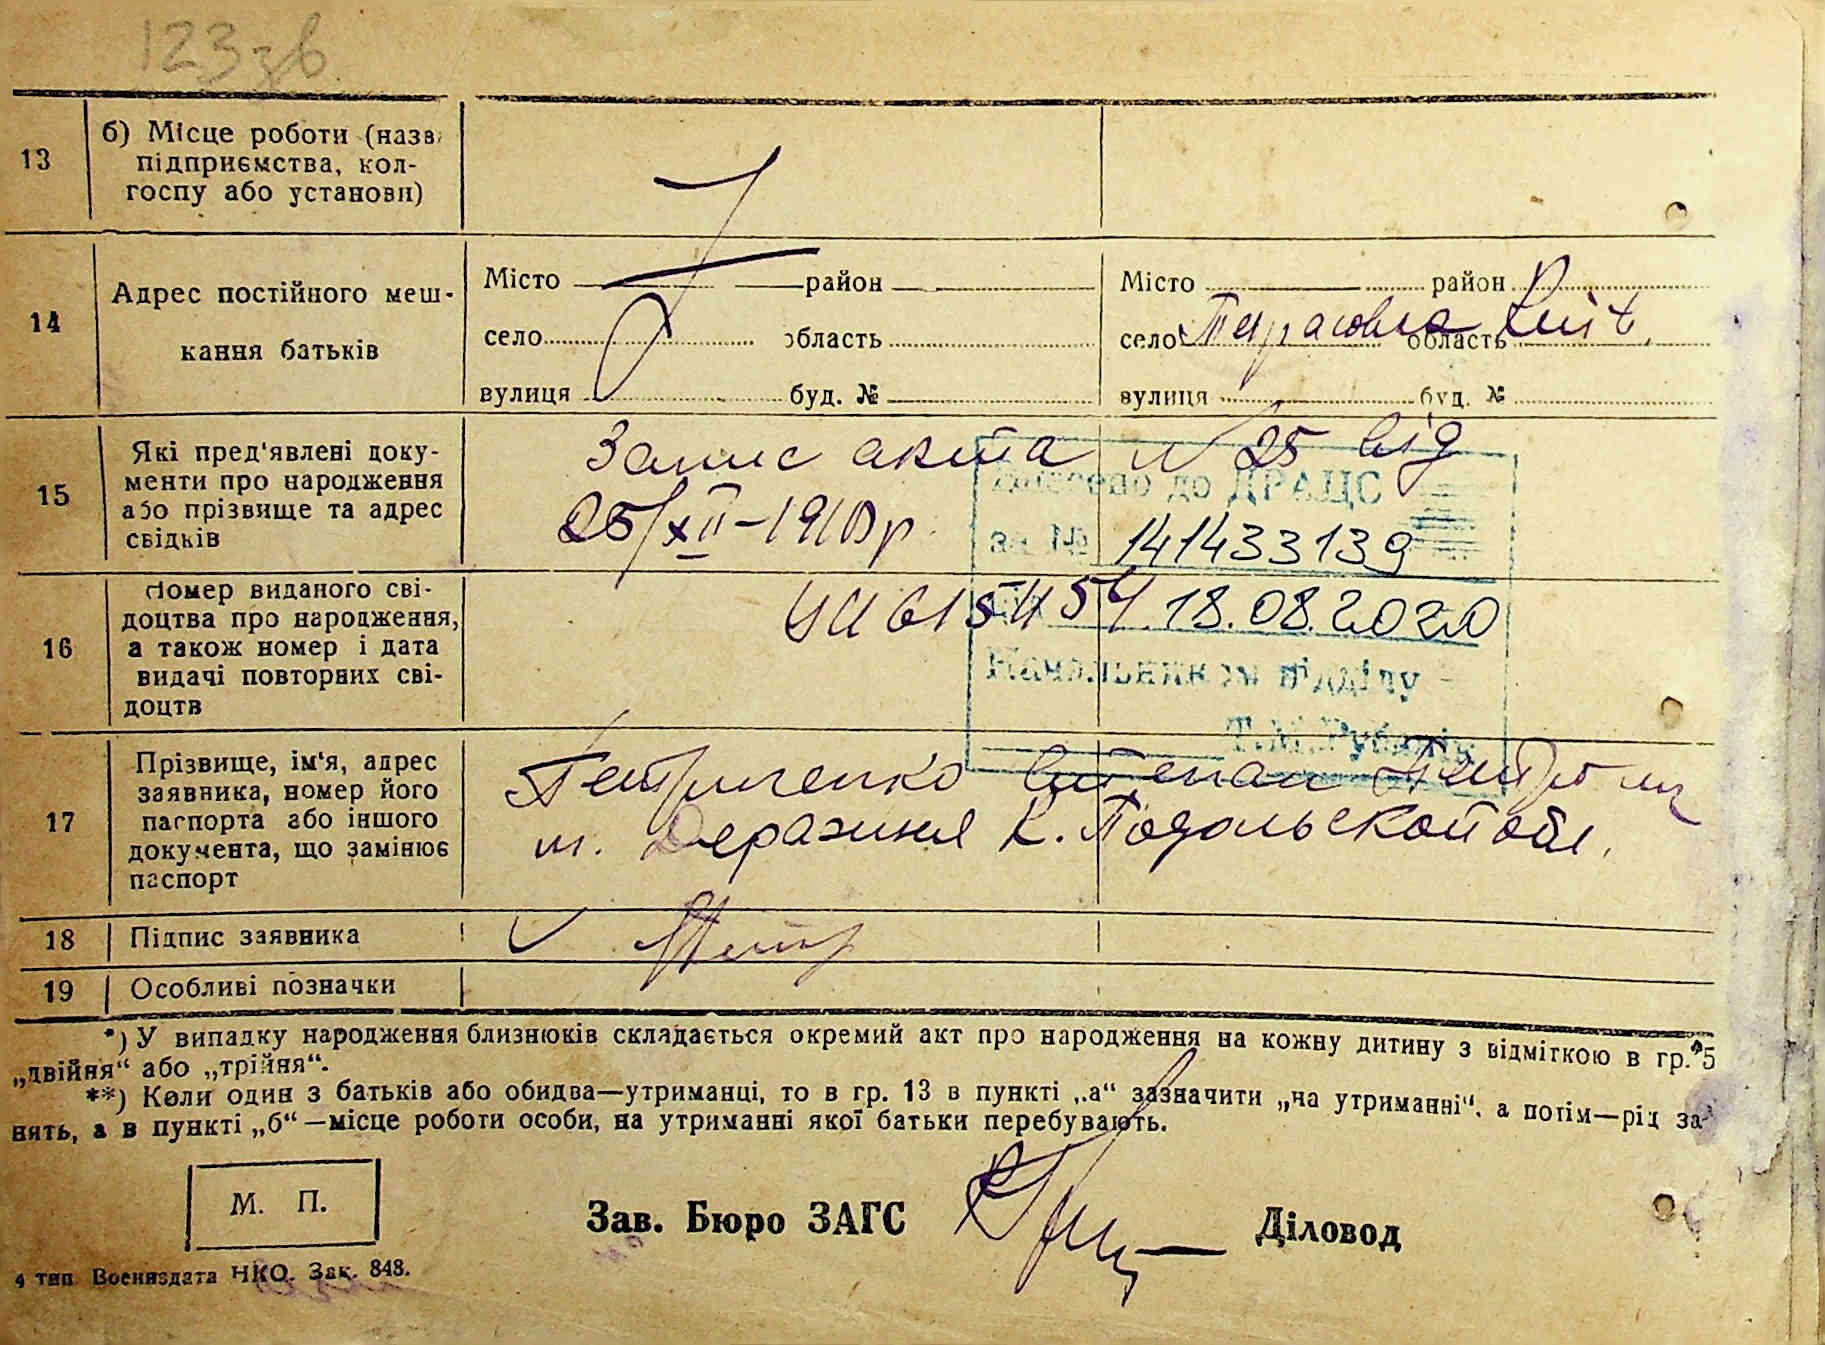 123зв
13
б) Місце роботи (назв
підприємства, кол-
госпу або установи)
14
Адрес постійного меш-
кання батьків
Місто район
село область
вулиця буд. №
Місто район
село Тарасовка область Київ.
вулиця буд. №
15
Які пред'явлені доку-
менти про народження
або прізвище та адрес
свідків
Запис акта № 25 від
25/XII-1910р
до ДРАЦС
за № 141433139
16
Номер виданого сві-
доцтва про народження,
а також номер і дата
видачі повторних сві-
доцтв
18.08.2020
Начальник відділу
17
Прізвище, ім'я, адрес
заявника, номер його
паспорта або іншого
документа, що замінює
паспорт
Петриченко Степан
м. Деражня К. Подольской обл.
18
Підпис заявника
19
Особливі позначки
*) У випадку народження близнюків складається окремий акт про народження на кожну дитину з відміткою в гр. 5
„двійня“ або „трійня“.
**) Коли один з батьків або обидва—утриманці, то в гр. 13 в пункті „а“ зазначити „на утриманні“, а потім—рід за-
нять, а в пункті „б“—місце роботи особи, на утриманні якої батьки перебувають.
М. П.
Зав. Бюро ЗАГС
Діловод
4 тип. Воениздата НКО. Зак. 848.